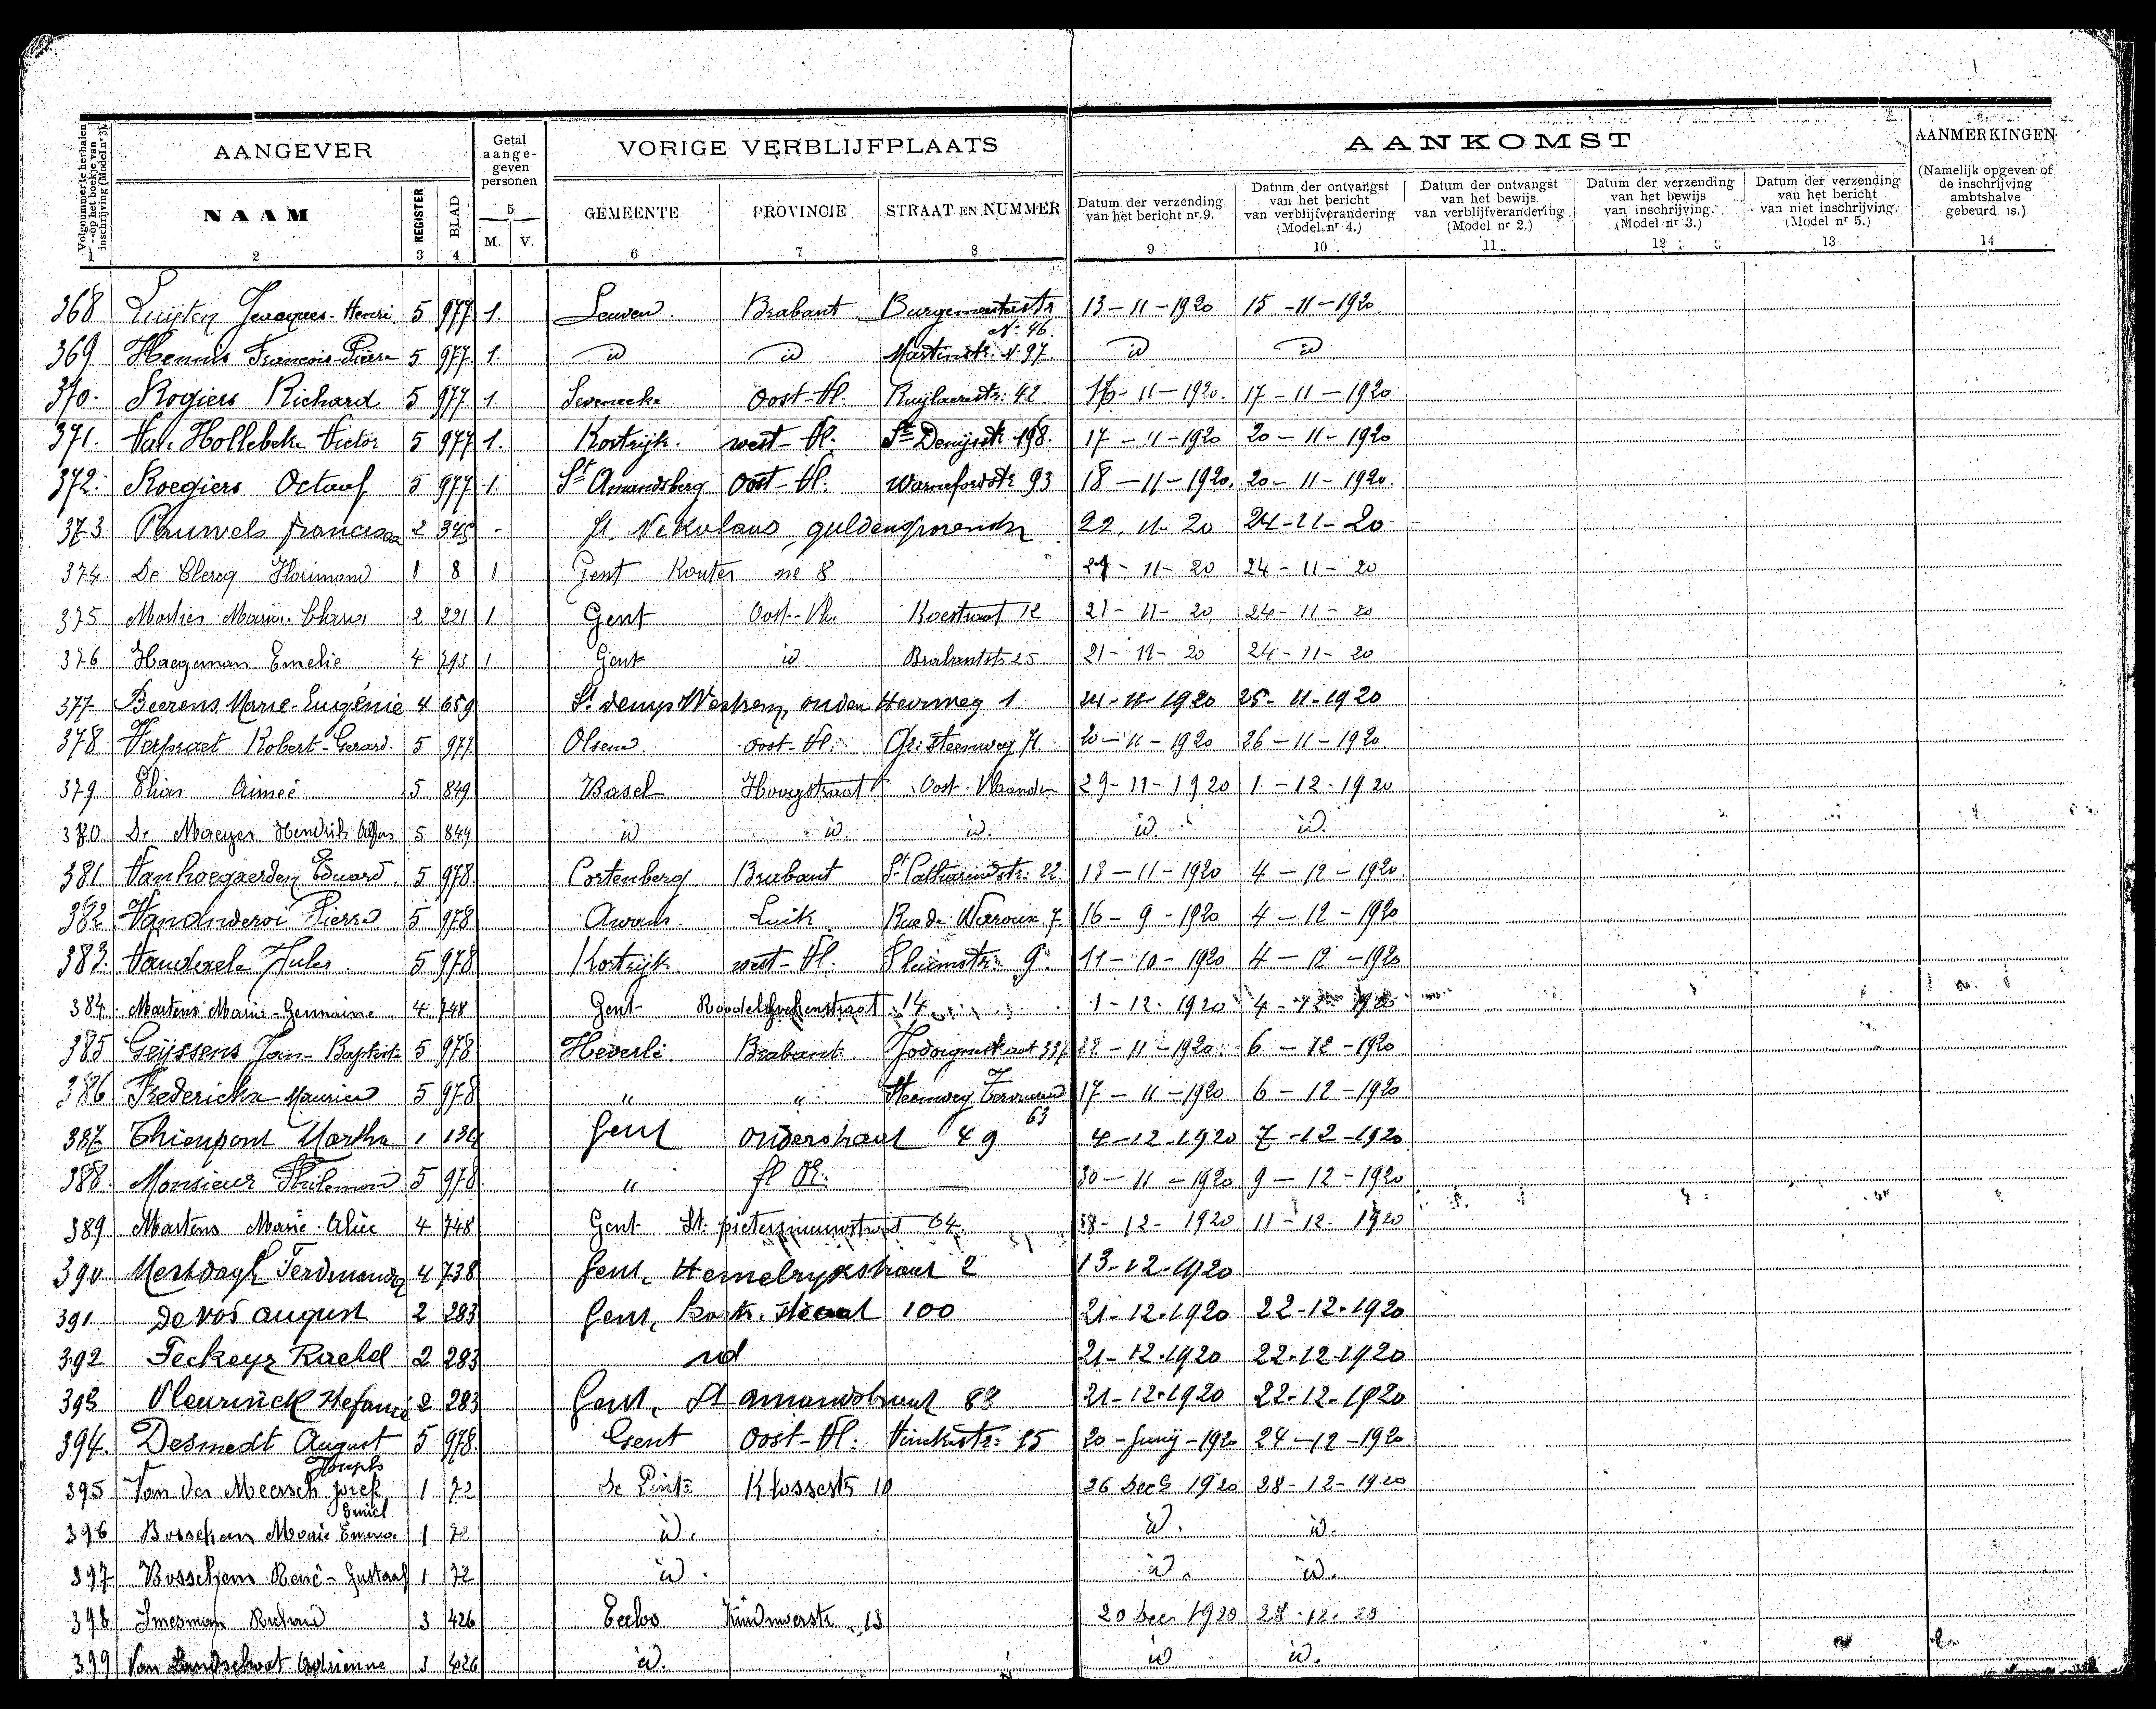 AANGEVER
Getal aange- geven personen
VORIGE VERBLIJFPLAATS
AANKOMST
AANMERKINGEN
Volgnummer te herhalen op het boekje van inschrijving (Model nr 3).
NAAM
REGISTER
BLAD
5
M. V.
GEMEENTE
PROVINCIE
STRAAT EN NUMMER
Datum der verzending van het bericht nr. 9.
Datum der ontvangst van het bericht van verblijfverandering (Model nr 4.)
Datum der ontvangst van het bewijs van verblijfverandering. (Model nr 2.)
Datum der verzending van het bewijs van inschrijving. (Model nr 3.)
Datum der verzending van het bericht van niet inschrijving. (Model nr 5.)
(Namelijk opgeven of de inschrijving ambtshalve gebeurd is.)
1 2 3 4 6 7 8 9 10 11 12 13 14
368 Henri 5 977 1. Leuven Brabant Burgemeesterstr N: 46 13-11-1920 15-11-1920
369 Hennis François-Pierre 5 977 1. id id Martinstr: N. 97 id id
370. Rogiers Richard 5 977 1. Oost-Vl. 42 16-11-1920. 17-11-1920
371. Van Hollebeke Victor 5 977 1. Kortrijk. west-Vl. St Denijsstr 198. 17-11-1920 20-11-1920
372. Roegiers Octaaf 5 977 1. St Amandsberg Oost-Vl. 93 18-11-1920. 20-11-1920.
373 Pauwels 2 345 - St. Nikolaus 22. 11-20 24-11-20
374. De Clercq Florimond 1 8 1 Gent Kouter no 8 24-11-20 24-11-20
375 2 221 1 Gent Oost-Vl. Koestraat 12 21-11-20 24-11-20
376 Haegeman Emelie 4 793 1 Gent id Brabantstr 25 21-11-20 24-11-20
377 Beerens Marie-Eugénie 4 659 St. Denys Westrem, ouden Heirweg 1. 24-11-1920 25-11-1920
378 Verpraet Robert-Gerard. 5 977 Olsene Oost-Vl: 20-11-1920 26-11-1920
379 Aimeé 5 849 Basel Hoogstraat Oost-Vlaanden 29-11-1920 1-12-1920
380 De Maeyer Hendrik 5 849 id id. id. id id.
381 Vanhoegaerden Eduard. 5 978 Cortenberg Brabant St Catharinastr: 22. 18-11-1920 4-12-1920.
382 Pierre 5 978 Awans. Luik Rue de Waroux 7. 16-9-1920 4-12-1920
383. Vandaele Jules 5 978 Kortrijk west-Vl. 9. 11-10-1920 4-12-1920
384. Martens Marie-Germaine 4 748 Gent 14 1-12-1920 4-12-1920
385 Geijssens Jan-Baptist 5 978 Heverlé Brabant 337 22-11-1920. 6-12-1920
386 Fredericks Maurice 5 978 " " Steenweg 63 17-11-1920 6-12-1920
387 Thienpont Martha 1 134 Gent Onderstraat 49 4-12-1920 7-12-1920
388. Monsieur Philemon 5 978 " — 30-11-1920 9-12-1920
389 Martens Marie-Alice 4 748 Gent St. pietersnieuwstraat 64 8-12-1920 11-12-1920
390 Mestdagh 4 738 Gent, Hemelrijkstraat 2 13-12-1920
391 De vos august 2 283 Gent, 100 21-12-1920 22-12-1920
392 Feckeyr Rachel 2 283 id 21-12-1920 22-12-1920
393 Vleurinck Stefanie 2 283 Gent, St amandstraat 83 21-12-1920 22-12-1920
394. Desmedt August 5 978. Gent Oost-Vl: 15 20-Junij-1920 24-12-1920
395 Van der Meersch Jozef Joseph Emiel 1 72 De Pinte Klossestr 10 26 Dec 1920 28-12-1920
396 Marie Emma 1 72 id. id. id.
397 René-Gustaaf 1 72 id. id. id.
398 Richard 3 426 Eecloo 13 20 Dec 1920 28-12-20
399 Van Adrienne 3 426 id. id id.